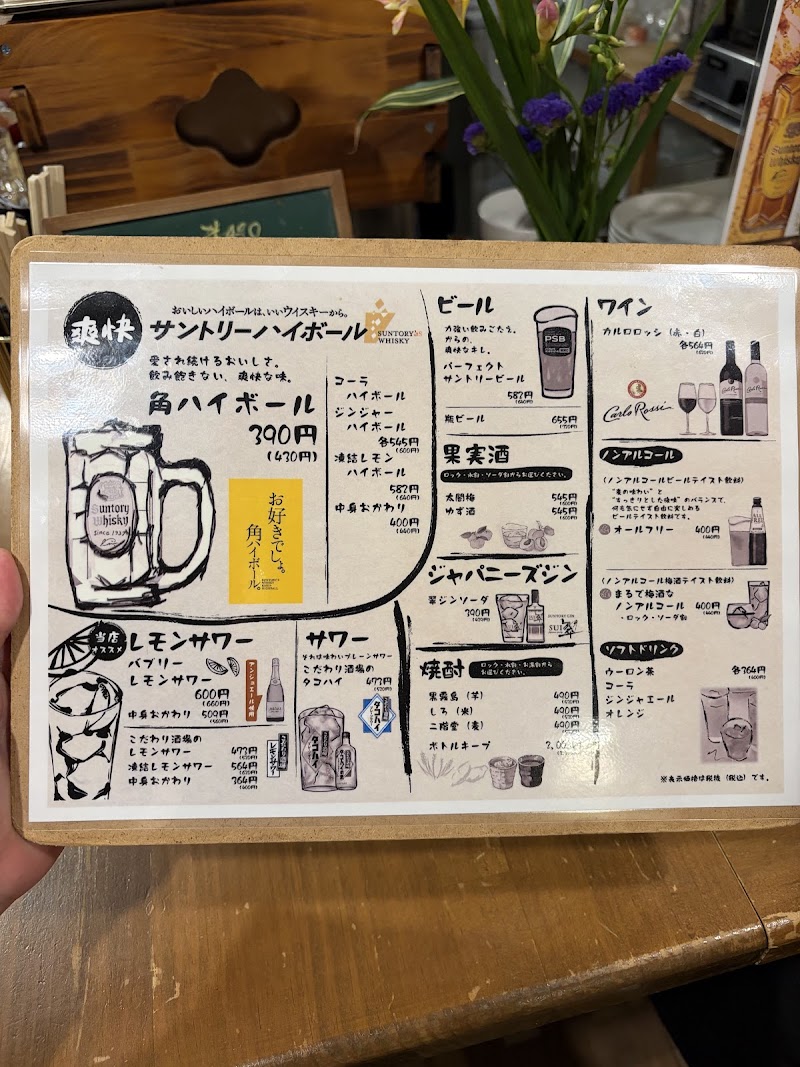 爽快
おいしいハイボールは、いいウイスキーから。
サントリーハイボール
SUNTORY
WHISKY
愛され続けるおいしさ。
飲み飽きない、爽快な味。
角ハイボール
390円
(430円)
Suntory
Whisky
Since 1937
お好きでしょ。
角ハイボール。
コーラ
ハイボール
ジンジャー
ハイボール
各545円
(600円)
凍結レモン
ハイボール
582円
(640円)
中身おかわり
400円
(440円)
当店
オススメ
レモンサワー
バブリー
レモンサワー
600円
(660円)
中身おかわり 509円
(560円)
こだわり酒場の
レモンサワー 473円
(520円)
凍結レモンサワー 564円
(620円)
中身おかわり 364円
(400円)
こだわり酒場の
レモンサワー
サワー
それは味わいプレーンサワー
こだわり酒場の
タコハイ 473円
(520円)
タコハイ
ビール
力強い飲みごたえ。
からの、
爽快なキレ。
パーフェクト
サントリービール
582円
(640円)
PSB
瓶ビール 655円
果実酒
ロック・水割・ソーダ割からお選びください。
太閤梅 545円
(600円)
ゆず酒 545円
(600円)
ジャパニーズジン
翠ジンソーダ
390円
SUI 翠
焼酎
ロック・水割・お湯割から
お選びください。
黒霧島 (芋) 490円
しろ (米) 490円
二階堂 (麦) 490円
ボトルキープ
ワイン
カルロロッシ (赤・白)
各564円
Carlo Rossi
ノンアルコール
(ノンアルコールビールテイスト飲料)
"麦の味わい"と
"すっきりとした後味"のバランスで、
何も気にせず自由に楽しめる
ビールテイスト飲料です。
オールフリー 400円
(440円)
(ノンアルコール梅酒テイスト飲料)
まるで梅酒な
ノンアルコール 400円
(440円)
・ロック・ソーダ割
ソフトドリンク
ウーロン茶 各364円
(400円)
コーラ
ジンジャエール
オレンジ
※表示価格は税抜 (税込) です。